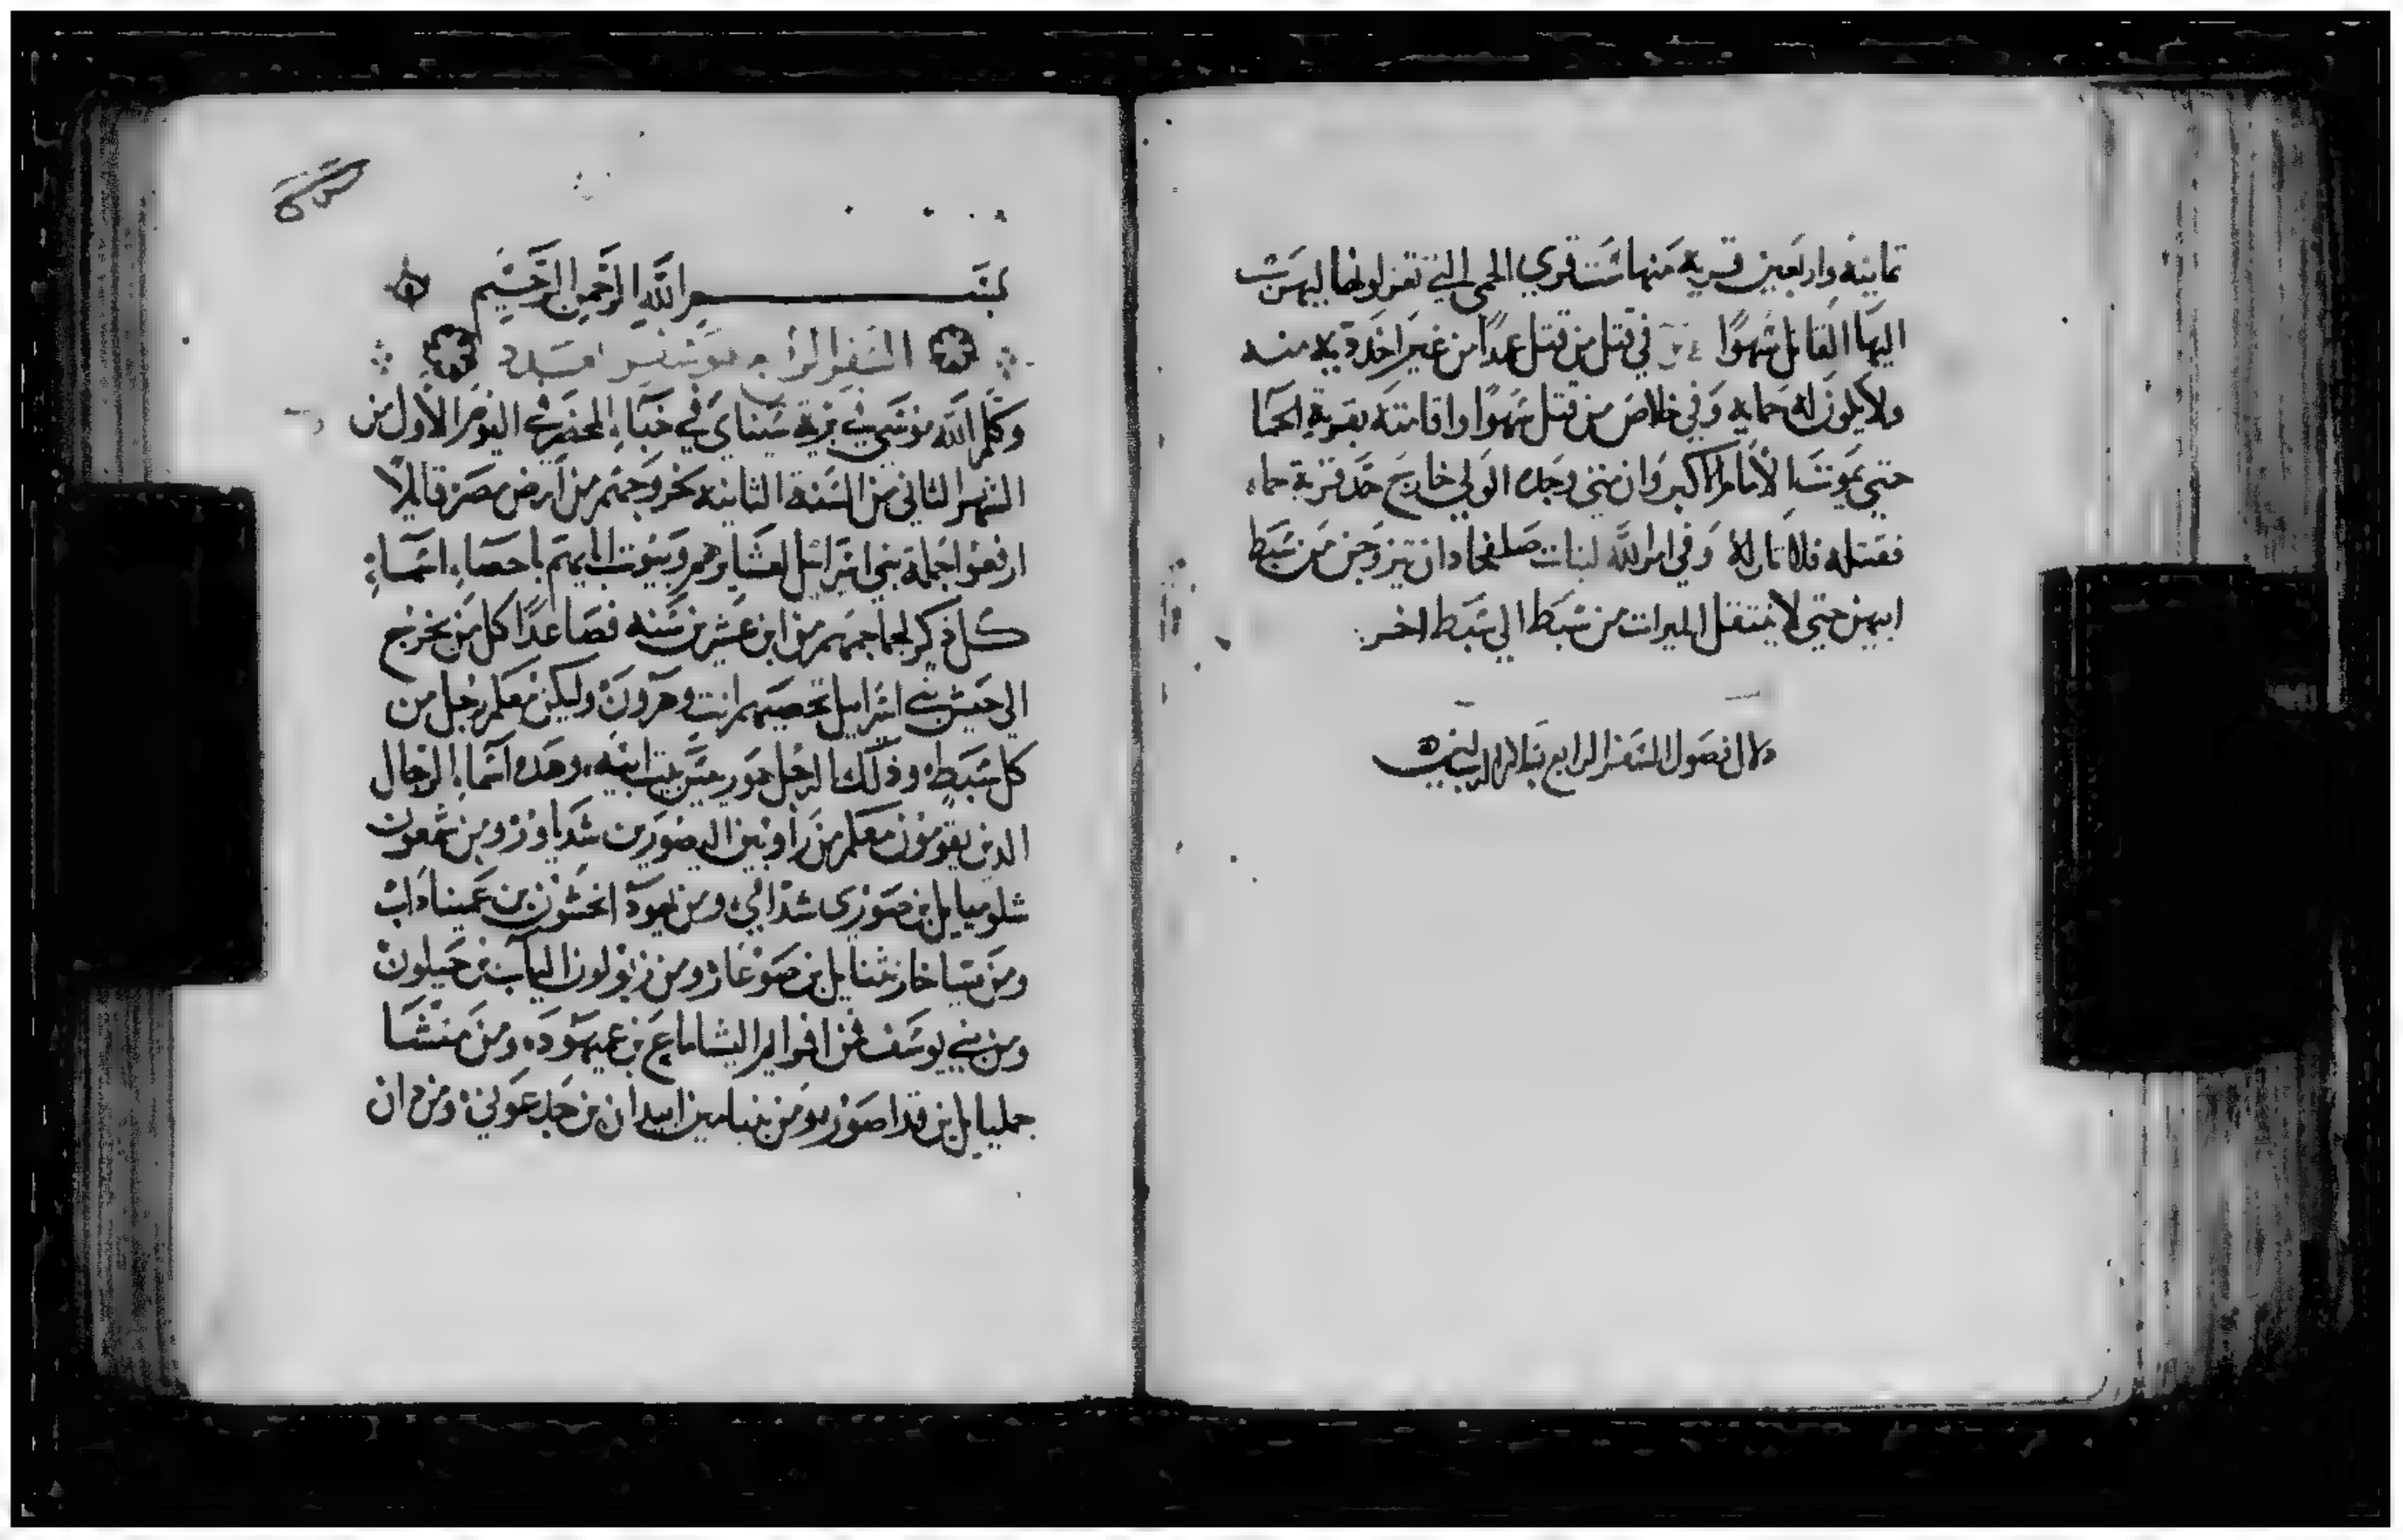 ثمانيه واربعين قريه منها ست قري الحمى التي تعزلونها ليهرب
اليها القاتل سهوًا في قتل من قتل عمدًا من غير اخد دية منه
ولا يكون له حمايه وفي خلاص من قتل سهوًا واقامته بقرية الحما
حتى يموت الامام الاكبر وان متى وجده الولي خارج حد قرية حماه
فقتله فلا ثار له وفي امر الله لبنات صلفحاد ان يتزوجن من سبط
ابيهن حتي لا ينتقل الميرات من سبط الي سبط اخر
فصول السفر الرابع
بسم الله الرحمن الرحيم
السفر الرابع
وكلم الله موسى في برية سيناي في خباء المحضر في اليوم الأول من
الشهر الثاني من السنة الثانيه لخروجهم من أرض مصر قايلاً
ارفعوا جملة بني اسرائيل لعشايرهم وبيوت ابايهم باحصاء اسماء
كل ذكر لجماجمهم من ابن عشرين سنه فصاعدًا كل من يخرج
الي جيش بني اسرايل تحصيهم انت وهرون وليكن معكم رجل من
كل سبط وذلك الرجل هو ريس بيت ابيه وهده اسماء الرجال
الدين يقومون معكم من راوبين اليصور بن شدياور ومن شمعون
شلوميايل بن صوري شداي ومن يهودا نحشون بن عميناداب
ومن يساخار نثنايل بن صوغار ومن زبولون الياب بن حيلون
ومن بني يوسف فمن افرايم اليشاماع بن عميهود ومن منشا
جمليايل بن فداصور ومن بنيامين ابيدان بن جدعوني ومن دان